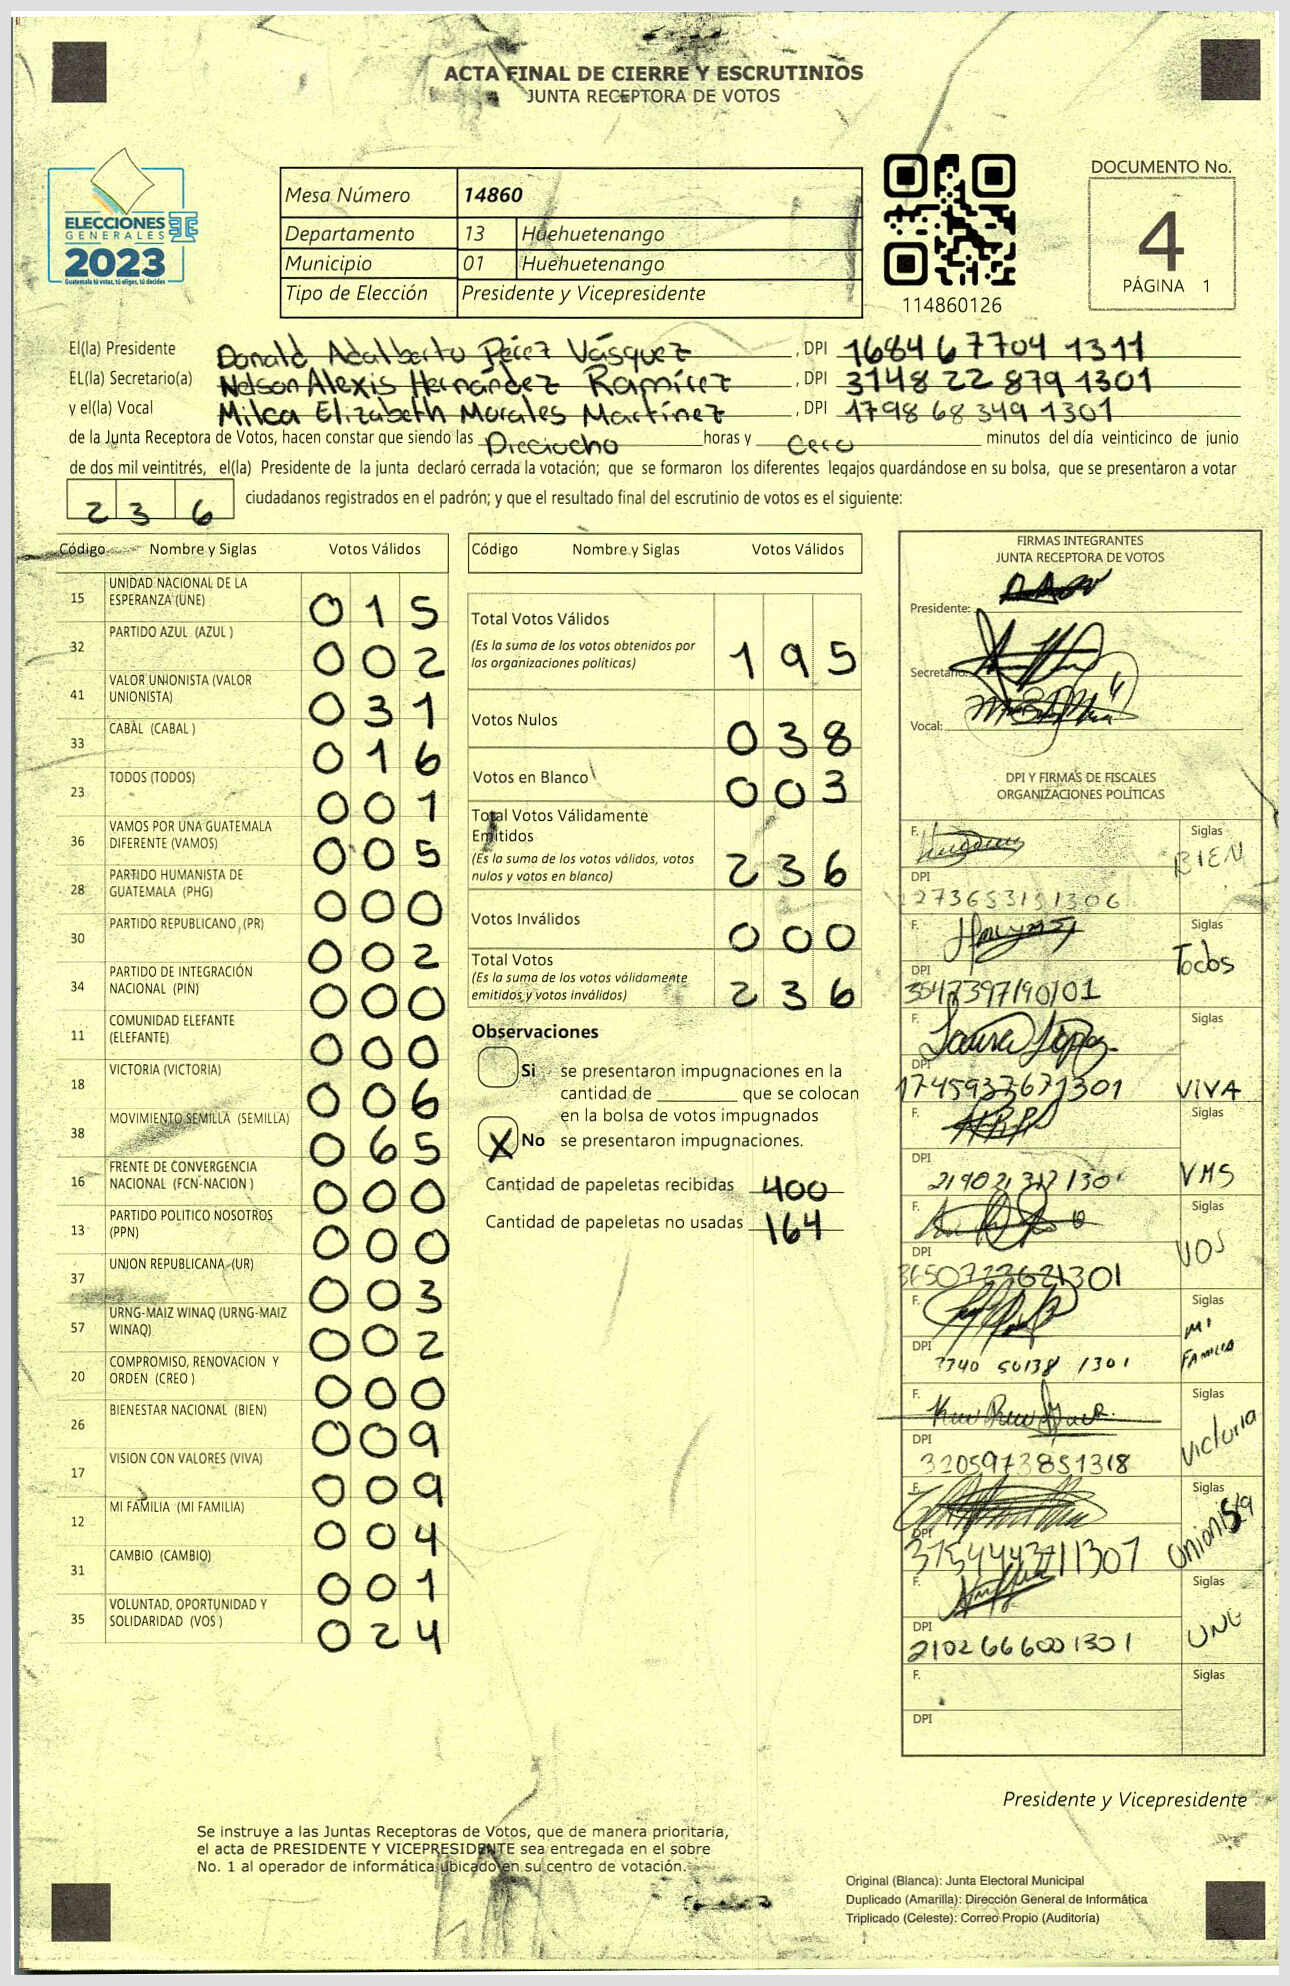 ACTA FINAL DE CIERRE Y ESCRUTINIOS
JUNTA RECEPTORA DE VOTOS
ELECCIONES
GENERALES
2023
Guatemala tú votas, tú eliges, tú decides
Mesa Número 14860
Departamento 13 Huehuetenango
Municipio 01 Huehuetenango
Tipo de Elección Presidente y Vicepresidente
114860126
DOCUMENTO No.
4
PÁGINA 1
El(la) Presidente Donald Adalberto Pérez Vásquez , DPI 1684 67704 1311
EL(la) Secretario(a) Nelson Alexis Hernandez Ramírez , DPI 3148 22 879 1301
y el(la) Vocal Milca Elizabeth Morales Martínez , DPI 1798 68 349 1301
de la Junta Receptora de Votos, hacen constar que siendo las Dieciocho horas y cero minutos del día veinticinco de junio
de dos mil veintitrés, el(la) Presidente de la junta declaró cerrada la votación; que se formaron los diferentes legajos guardándose en su bolsa, que se presentaron a votar
236 ciudadanos registrados en el padrón; y que el resultado final del escrutinio de votos es el siguiente:
Código Nombre y Siglas Votos Válidos
15 UNIDAD NACIONAL DE LA ESPERANZA (UNE) 015
32 PARTIDO AZUL (AZUL ) 002
41 VALOR UNIONISTA (VALOR UNIONISTA) 031
33 CABAL (CABAL ) 016
23 TODOS (TODOS) 001
36 VAMOS POR UNA GUATEMALA DIFERENTE (VAMOS) 005
28 PARTIDO HUMANISTA DE GUATEMALA (PHG) 000
30 PARTIDO REPUBLICANO (PR) 002
34 PARTIDO DE INTEGRACIÓN NACIONAL (PIN) 000
11 COMUNIDAD ELEFANTE (ELEFANTE) 000
18 VICTORIA (VICTORIA) 006
38 MOVIMIENTO SEMILLA (SEMILLA) 065
16 FRENTE DE CONVERGENCIA NACIONAL (FCN-NACION ) 000
13 PARTIDO POLITICO NOSOTROS (PPN) 000
37 UNION REPUBLICANA (UR) 003
57 URNG-MAIZ WINAQ (URNG-MAIZ WINAQ) 002
20 COMPROMISO, RENOVACION Y ORDEN (CREO ) 000
26 BIENESTAR NACIONAL (BIEN) 009
17 VISION CON VALORES (VIVA) 009
12 MI FAMILIA (MI FAMILIA) 004
31 CAMBIO (CAMBIO) 001
35 VOLUNTAD, OPORTUNIDAD Y SOLIDARIDAD (VOS ) 024
Código Nombre y Siglas Votos Válidos
Total Votos Válidos 195
(Es la suma de los votos obtenidos por
las organizaciones políticas)
Votos Nulos 038
Votos en Blanco 003
Total Votos Válidamente
Emitidos
(Es la suma de los votos válidos, votos
nulos y votos en blanco) 236
Votos Inválidos 000
Total Votos
(Es la suma de los votos válidamente
emitidos y votos inválidos) 236
Observaciones
Si se presentaron impugnaciones en la
cantidad de ________ que se colocan
en la bolsa de votos impugnados
X No se presentaron impugnaciones.
Cantidad de papeletas recibidas 400
Cantidad de papeletas no usadas 164
FIRMAS INTEGRANTES
JUNTA RECEPTORA DE VOTOS
Presidente:
Secretario:
Vocal:
DPI Y FIRMAS DE FISCALES
ORGANIZACIONES POLÍTICAS
F. Siglas BIEN
DPI
F. Siglas Todos
DPI
F. Laura López Siglas
DPI 1745937671301 VIVA
F. Siglas
DPI VMS
F. Siglas
DPI VOS
F. Siglas MI FAMILIA
DPI
F. Siglas Victoria
DPI 3205973851318
F. Siglas Unionista
DPI
F. Siglas UNE
DPI 2102666001301
F. Siglas
DPI
Presidente y Vicepresidente
Se instruye a las Juntas Receptoras de Votos, que de manera prioritaria,
el acta de PRESIDENTE Y VICEPRESIDENTE sea entregada en el sobre
No. 1 al operador de informática ubicado en su centro de votación.
Original (Blanca): Junta Electoral Municipal
Duplicado (Amarilla): Dirección General de Informática
Triplicado (Celeste): Correo Propio (Auditoría)